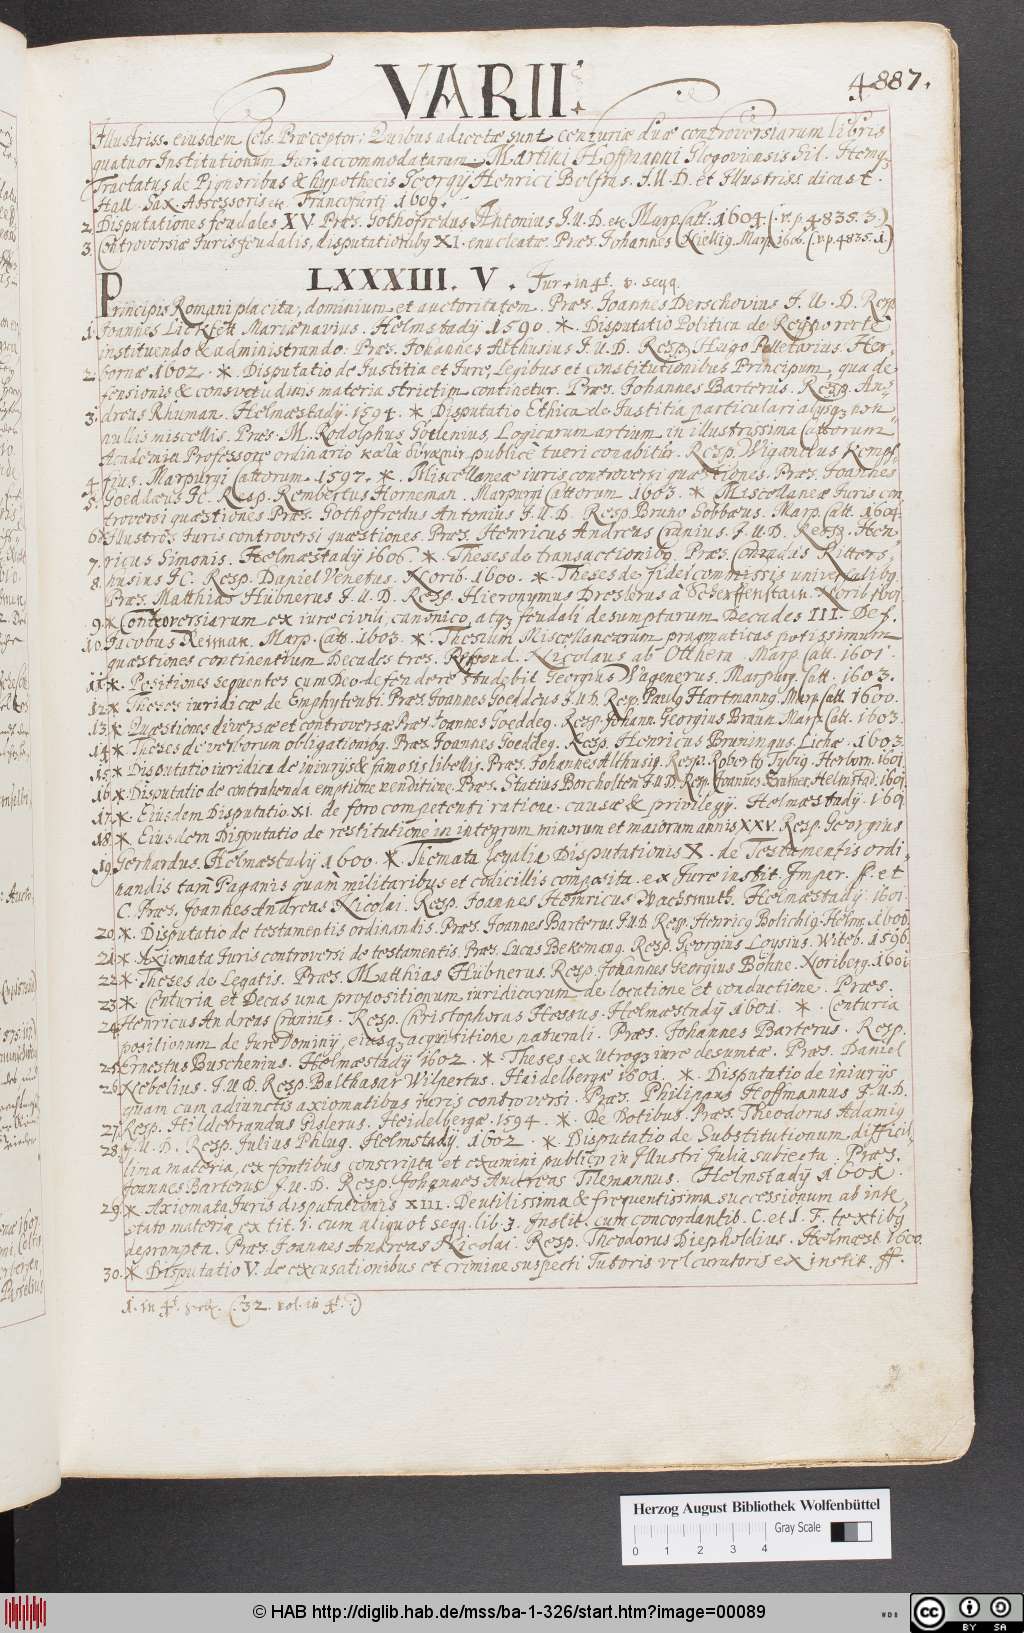 VARII.
4887.
Illustriss. eiusdem Cels. Præceptor: Quibus adiectæ sunt centuriæ duæ controversiarum libris
quatuor Institutionum Iur. accommodatarum. Martini Hoffmanni Glogoviensis Sil. Itemq3
Tractatus de Pignoribus & hypothecis Georgij Henrici Bolfras. J.U.D. et Illustriss dicast.
Hall. Sax. Assessoris etc. Francofurti 1609.
2. Disputationes feudales XV Præs. Gothofredus Antonius J.U.D. etc. Marp. Catt. 1604. (. v. p. 4835. 3.)
3. Controversiæ Iuris feudalis, disputationibq XI. enucleatæ. Præs. Johannes Kiellig. Marp. 1606. (v. p. 4835. 1.)
LXXXIII. V. Jur. in 4t. v. seqq.
Principis Romani placita, dominium et auctoritatem. Præs. Joannes Derschovius J.U.D. Resp.
1. Joannes Lickfett Mariænavius. Helmstadij 1590. * Disputatio Politica de Regno rectè
instituendo & administrando: Præs. Johannes Althusius J.U.D. Resp. Hugo Pelletarius. Her-
2. bornæ 1602. * Disputatio de Iustitia et Iure, Legibus et constitutionibus Principum, qua de-
fensionis & consvetudinis materia strictim continetur. Præs. Johannes Barterus. Resp. An-
3. dreas Rhuman. Helmæstadij. 1594. * Disputatio Ethica de Iustitia particulari alijsq3 non-
nullis miscellis. Præs. M. Rodolphus Goclenius, Logicarum artium in illustrissima Cattorum
Academia Professore ordinario publicè tueri conabitur. Resp. Wigandus Kempf-
4. fius. Marpurgi Cattorum. 1597. * Miscellaneæ iuris controversi quæstiones. Præs. Joannes
5. Goeddæus JC. Resp. Rembertus Horneman. Marpurgi Cattorum 1603. * Miscellaneæ Iuris con-
troversi quæstiones Præs. Gothofredus Antonius J.U.D. Resp Bruno Sobbæus. Marp. Catt. 1604.
6. Illustres Iuris controversi quæstiones. Præs. Henricus Andreas Cranius. J.U.D. Resp. Hen-
7. ricus Simonis. Helmæstadij 1606. * Theses de transactionibq. Præs. Conradus Ritters-
8. husius JC. Resp. Daniel Venetus. Norib. 1600. * Theses de fideicommissis universalibq.
Præs. Matthias Hübnerus J.U.D. Resp. Hieronymus Dreslerus à Scherffenstain. Norib. 1601.
9. * Controversiarum ex iure civili, canonico, atq3 feudali desumptarum Decades III. Def.
10. Jacobus Reinnan. Marp. Catt. 1603. * Thesium Miscellanearum pragmaticas potissimum
quæstiones continentium Decades tres. Respond. Nicolaus ab Otthera. Marp. Catt. 1601.
11. *. Positiones sequentes cum Deo defendere studebit Georgius Wagenerus. Marpurg. Catt. 1603.
12. * Theses iuridicæ de Emphyteusi. Præs. Joannes Goeddeus J.U.D. Resp. Paulq Hartmannq. Marp. Catt. 1600.
13. * Quæstiones diversæ et controversæ Præs. Joannes Goeddeq. Resp. Johann. Georgius Braun. Marp. Catt. 1603.
14. * Theses de verborum obligationibq. Præs. Joannes Goeddeq. Resp. Henricus Bruningus. Lichæ. 1603.
15. * Disputatio iuridica de iniurijs & famosis libellis. Præs. Johannes Althusiq. Resp. Robertq Tybiq. Herborn. 1601.
16. * Disputatio de contrahenda emptione venditione. Præs. Statius Borcholten J.U.D. Resp. Joannes Helmstad. 1601.
17. * Eiusdem Disputatio XI. de foro competenti ratione causæ & privilegij. Helmæstadij. 1601.
18. * Eiusdem Disputatio de restitutione in integrum minorum et maiorum annis XXV. Resp. Georgius
19. Gerhardus. Helmæstadij 1600. * Themata legalia Disputationis X. de Testamentis ordi-
nandis tam Paganis quam militaribus et codicillis composita ex Iure instit. Imper. ff. et
C. Præs. Joannes Andreas Nicolai. Resp. Joannes Heinricus Wachsmuth. Helmæstadij. 1601.
20. *. Disputatio de testamentis ordinandis. Præs. Joannes Barterus. J.U.D. Resp. Henricq Bolichiq. Helm. 1600.
21. * Axiomata Iuris controversi de testamentis. Præs. Lucas Bekemanq. Resp. Georgius Loysius. Witeb. 1596.
22. * Theses de Legatis. Præs. Matthias Hübnerus. Resp Johannes Georgius Bohne. Noriberg. 1601.
23. * Centuria et Decas una propositionum iuridicarum de locatione et conductione. Præs.
24. Henricus Andreas Cranius. Resp. Christophorus Hessus. Helmæstadij 1601. * Centuria
positionum de Iure Dominij, eiusq3 acquisitione naturali. Præs. Johannes Barterus. Resp.
25. Ernestus Buschenius. Helmæstadij 1602. * Theses ex utroq3 iure desumtæ. Præs. Daniel
26. Nebelius. J.U.D. Resp. Balthasar Wilpertus. Haidelbergæ 1601. * Disputatio de iniurijs
quam cum adjunctis axiomatibus iuris controversi. Præs. Philippus Hoffmannus J.U.D.
27. Resp. Hildebrandus Gislerus. Heidelbergæ. 1594. * De Dotibus. Præs. Theodorus Adamiq
28. J.U.D. Resp. Julius Phlug. Helmstadij. 1602. * Disputatio de Substitutionum difficil-
lima materia, ex fontibus conscripta et examini publico in Illustri Julia subiecta. Præs.
Joannes Barterus J.U.D. Resp. Johannes Andreas Tilemannus. Helmstadij 1601.
29. * Axiomata Iuris disputationis XIII. De utilissima & frequentissima successionum ab inte-
stato materia ex tit. 1. cum aliquot seqq. lib. 3. Instit. cum concordantib. C. et I. F. textibq
deprompta. Præs. Joannes Andreas Nicolai. Resp. Theodorus Diepholdius. Helmæst. 1600.
30. * Disputatio V. de excusationibus et crimine suspecti Tutoris vel curatoris ex instit. ff.
1. in 4t. (:32. vol. in 4t. :)
Herzog August Bibliothek Wolfenbüttel
0 1 2 3 4 Gray Scale
© HAB http://diglib.hab.de/mss/ba-1-326/start.htm?image=00089
WDB
cc BY SA